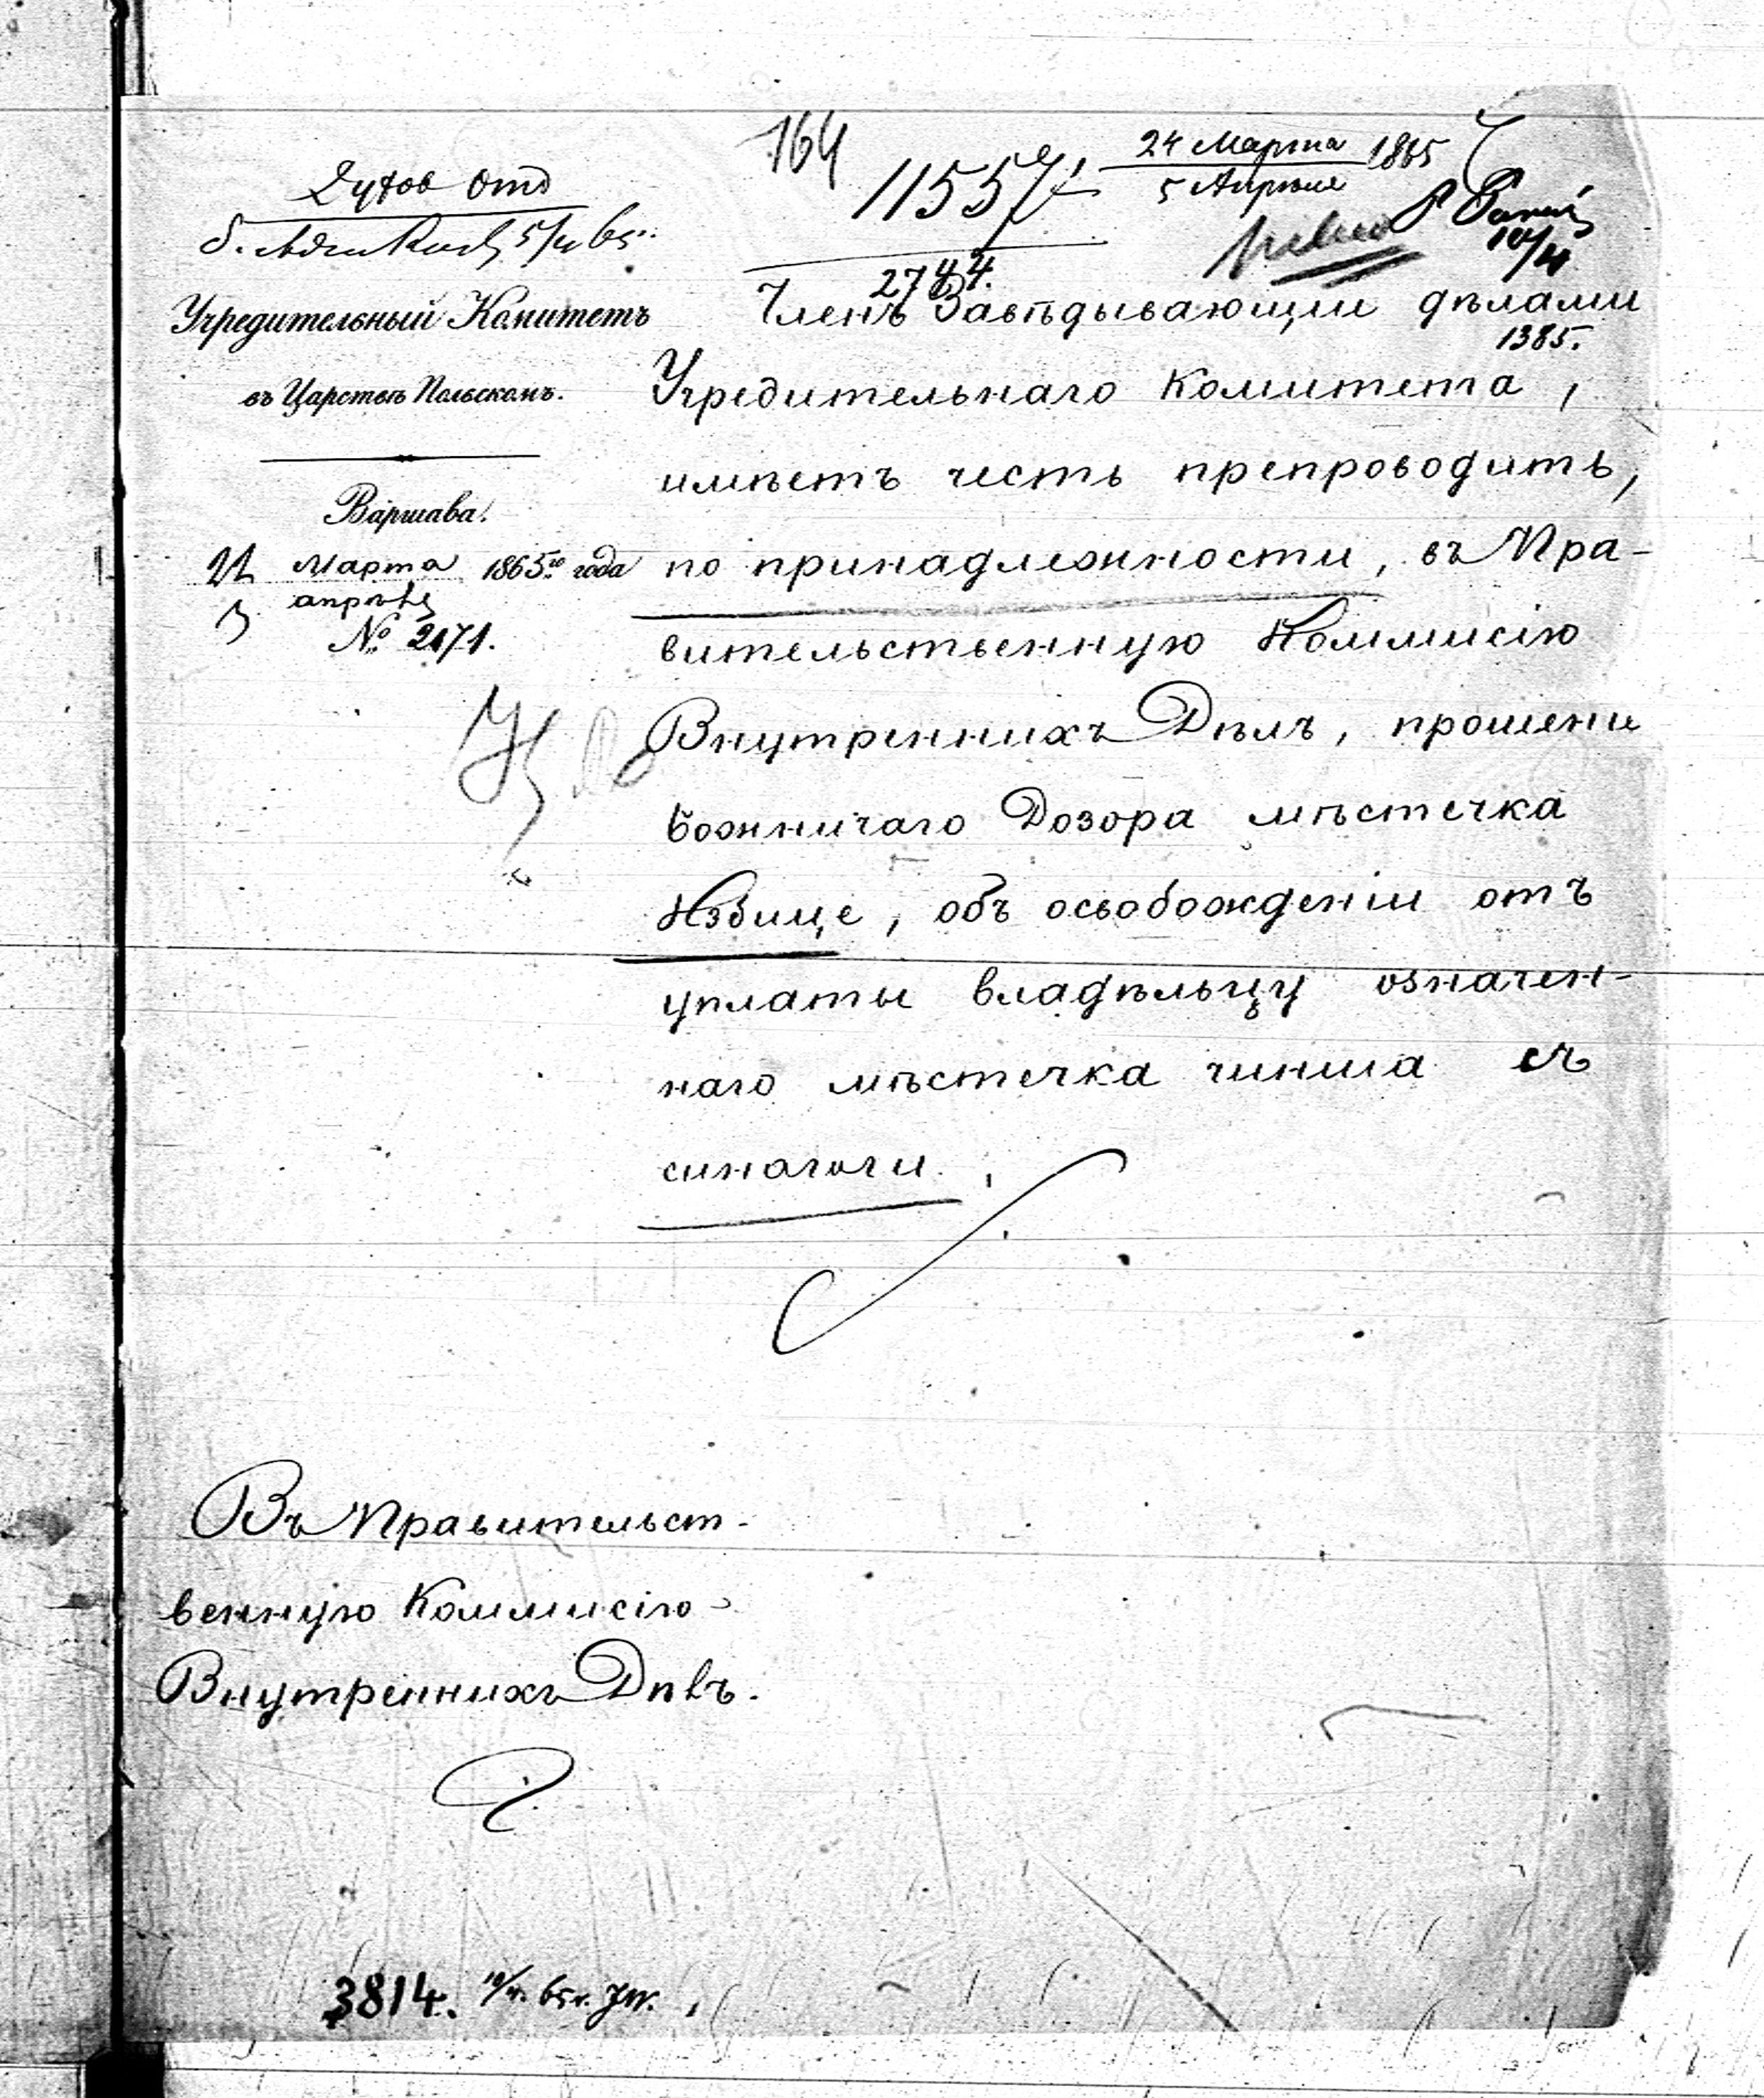 164
11557
24 Марта 1865
5 Апреля
Духов Отд
5/4 65.
10/4
2744.
1385.
Учредительный Комитетъ
въ Царствѣ Польскомъ.
Варшава.
22 Марта 1865го года
3 апрѣля
№ 2171.
Членъ Завѣдывающiй дѣлами
Учредительнаго Комитета,
имѣетъ честь препроводить,
по принадлежности, въ Пра-
вительственную Коммисiю
Внутреннихъ Дѣлъ, прошенiе
божничаго Дозора мѣстечка
Избице, объ освобожденiи отъ
уплаты владѣльцу означен-
наго мѣстечка чинша съ
синагоги.
Въ Правительст-
венную Коммисiю
Внутреннихъ Дѣлъ.
3814. 10/4. 65 r.